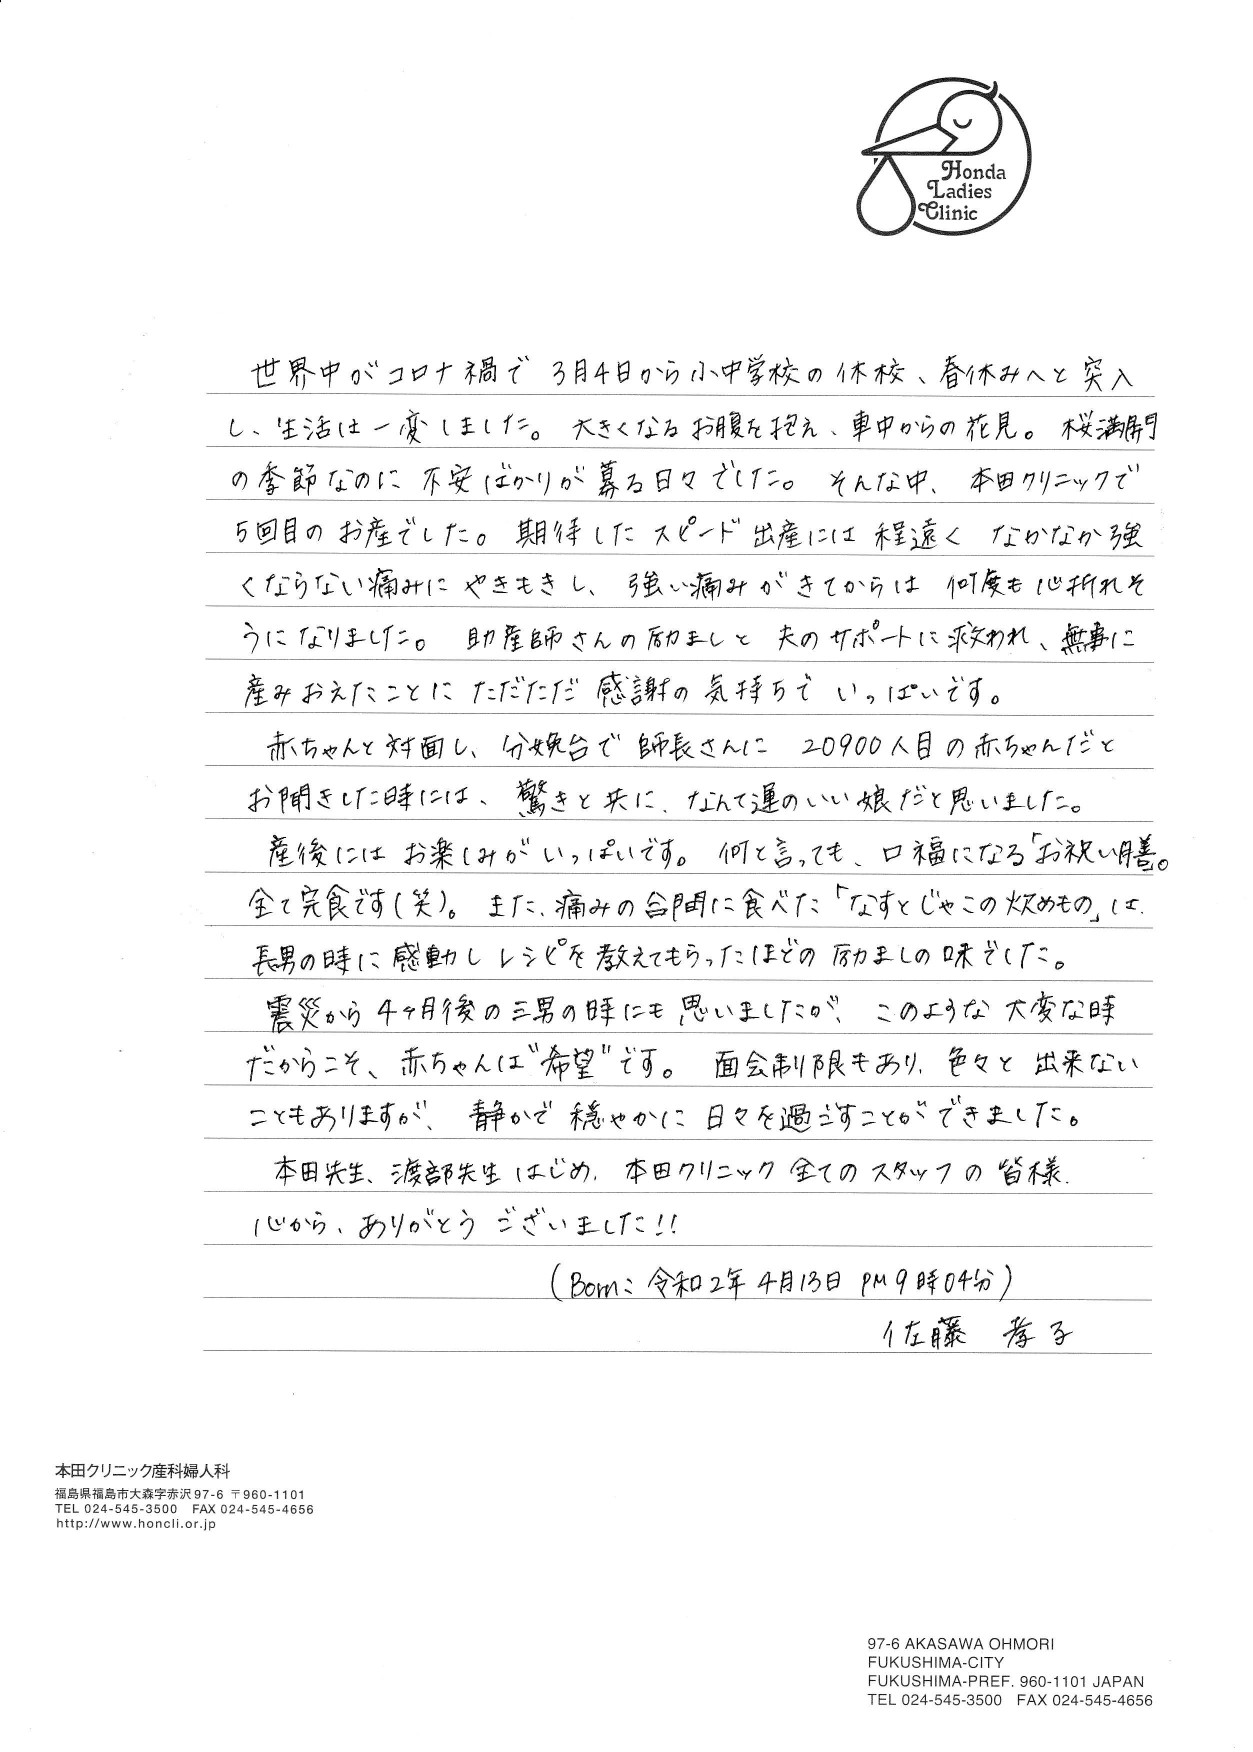 Honda
Ladies
Clinic
世界中がコロナ禍で 3月4日から小中学校の休校、春休みへと突入
し、生活は一変しました。大きくなるお腹を抱え、車中からの花見。桜満開
の季節なのに不安ばかりが募る日々でした。そんな中、本田クリニックで
5回目のお産でした。期待したスピード出産には程遠く なかなか強
くならない痛みにやきもきし、強い痛みがきてからは 何度も心折れそ
うになりました。助産師さんの励ましと 夫のサポートに救われ、無事に
産みおえたことに ただただ 感謝の気持ちでいっぱいです。
赤ちゃんと対面し、分娩台で師長さんに 20900人目の赤ちゃんだと
お聞きした時には、驚きと共に、なんて運のいい娘だと思いました。
産後にはお楽しみがいっぱいです。何と言っても、口福になる「お祝い膳。
全て完食です(笑)。また、痛みの合間に食べた「なすとじゃこの炊めもの」は、
長男の時に感動しレシピを教えてもらったほどの励ましの味でした。
震災から4ヶ月後の三男の時にも思いましたが、このような大変な時
だからこそ、赤ちゃんは"希望"です。面会制限もあり、色々と出来ない
こともありますが、静かで穏やかに日々を過ごすことができました。
本田先生、渡部先生はじめ、本田クリニック全てのスタッフの皆様、
心から、ありがとうございました!!
(Born: 令和2年4月13日 PM9時04分)
佐藤 孝子
本田クリニック産科婦人科
福島県福島市大森字赤沢97-6 〒960-1101
TEL 024-545-3500 FAX 024-545-4656
http://www.honcli.or.jp
97-6 AKASAWA OHMORI
FUKUSHIMA-CITY
FUKUSHIMA-PREF. 960-1101 JAPAN
TEL 024-545-3500 FAX 024-545-4656